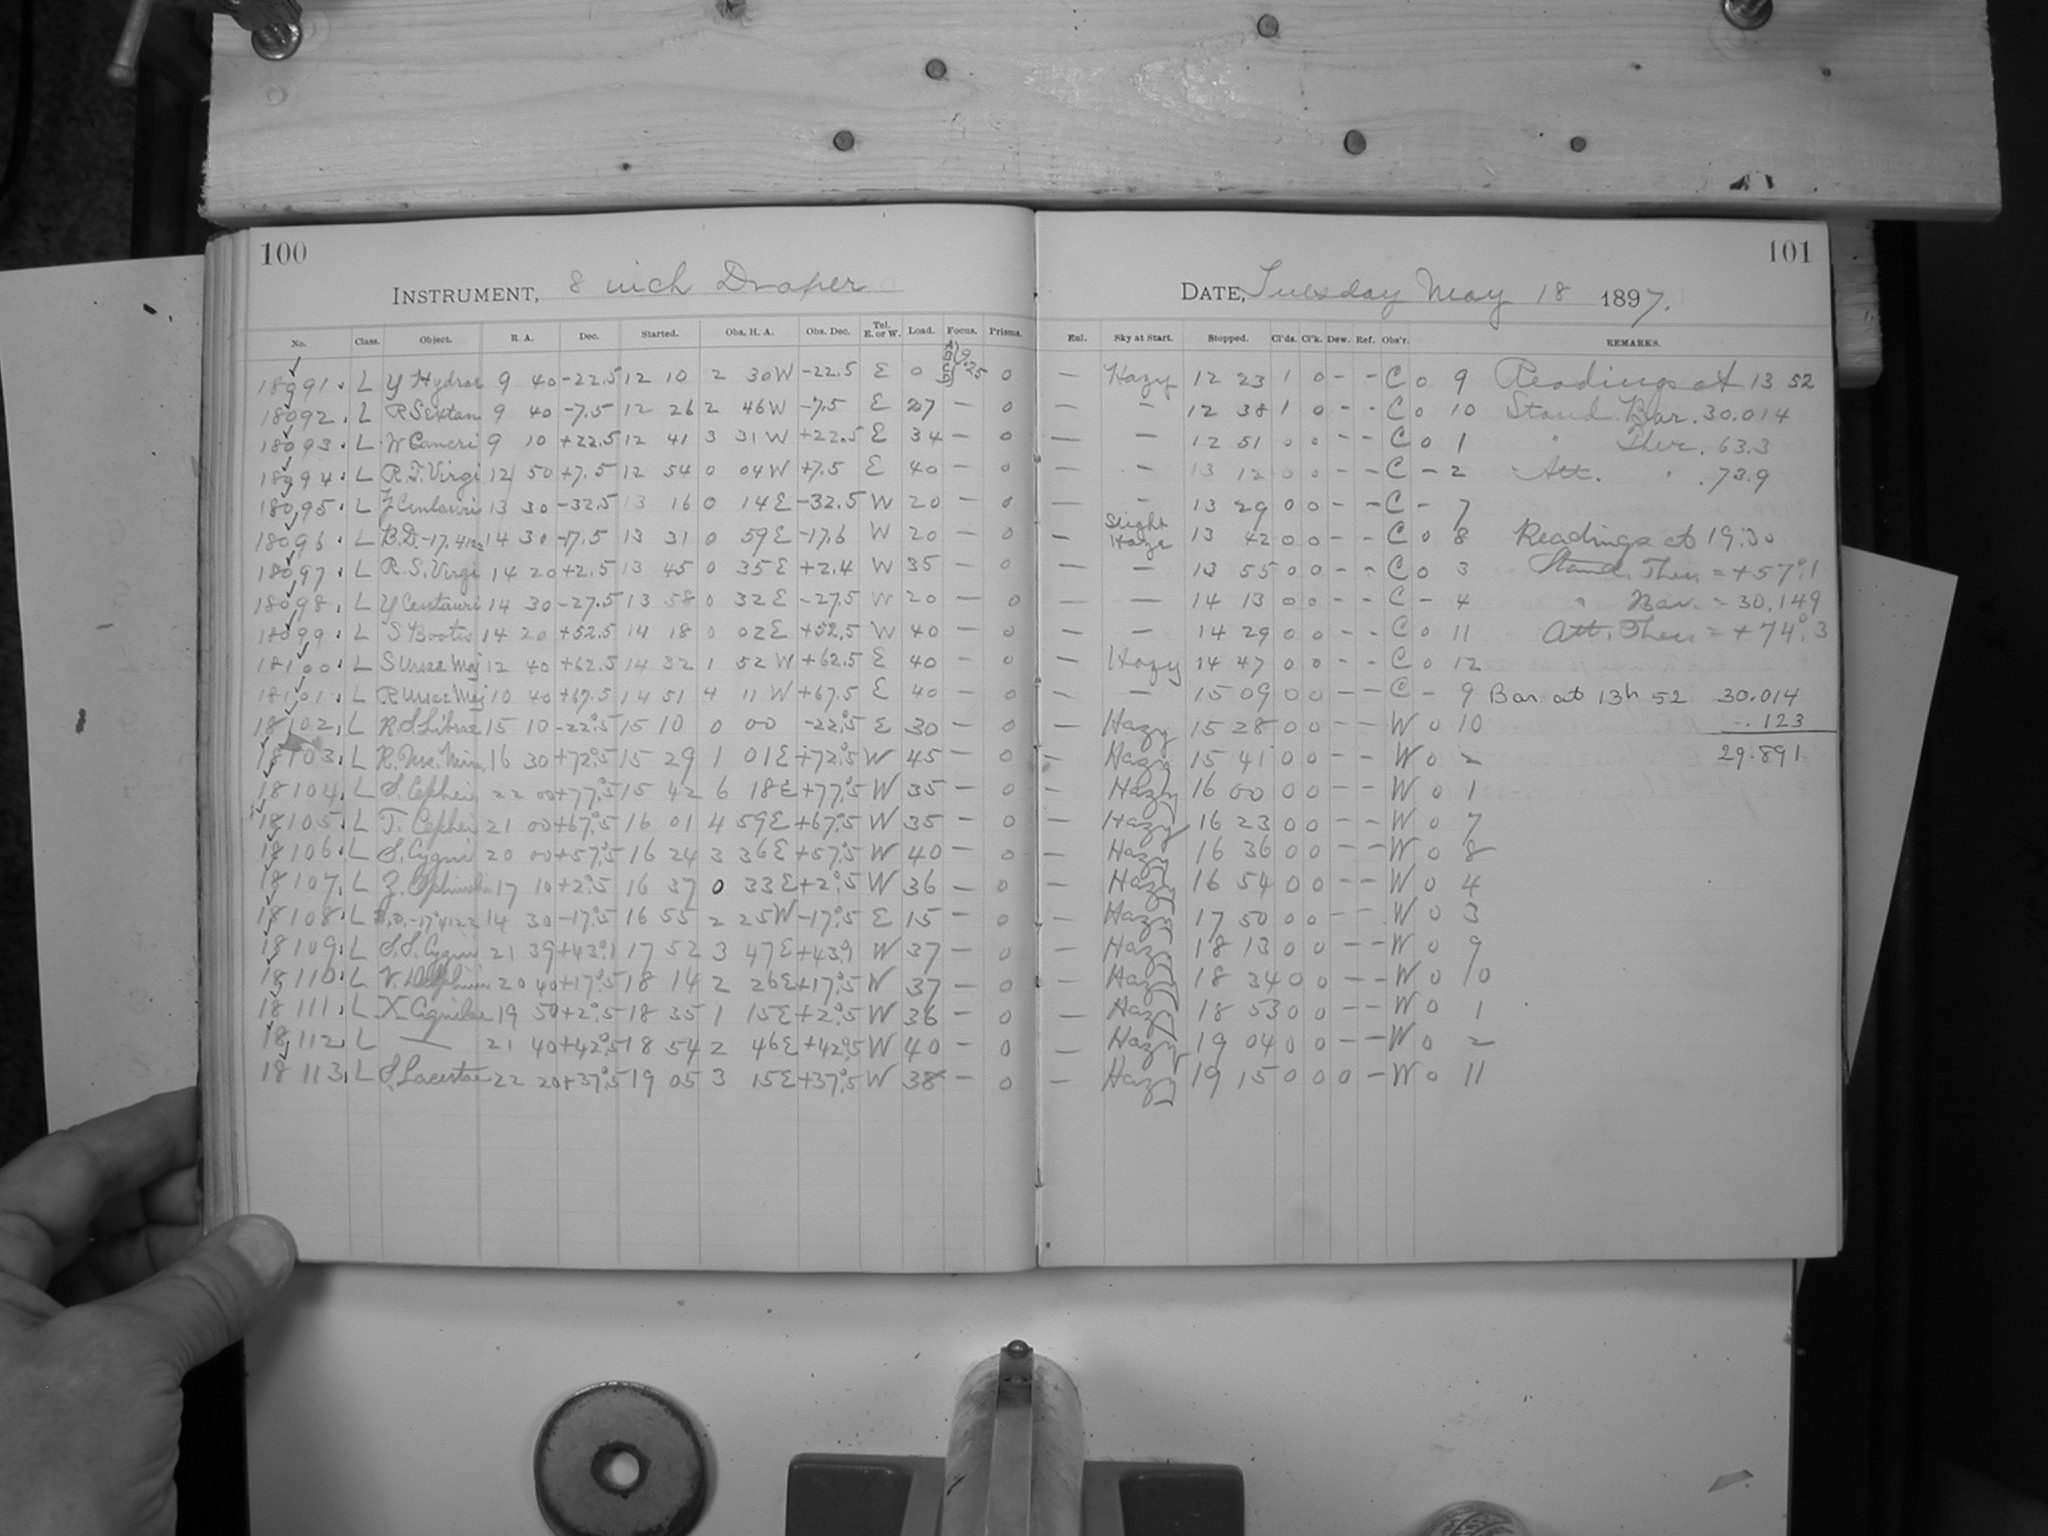 100
INSTRUMENT, 8 inch Draper
No. Class. Object. R. A. Dec. Started. Obs. H. A. Obs. Dec. Tel. E. or W. Load. Focus. Prisms.
18091. L Y Hydrae 9 40 -22.5 12 10 2 30 W -22.5 E 0 9.25 0
18092. L R Sextan 9 40 -7.5 12 26 2 46 W -7.5 E 27 — 0
18093. L W Cancri 9 10 +22.5 12 41 3 31 W +22.5 E 34 — 0
18094. L R.T. Virgi 12 50 +7.5 12 54 0 04 W +7.5 E 40 — 0
18095. L Centauri 13 30 -32.5 13 16 0 14 E -32.5 W 20 — 0
18096. L B.D. -17.4122 14 30 -17.5 13 31 0 59 E -17.6 W 20 — 0
18097. L R.S. Virgi 14 20 +2.5 13 45 0 35 E +2.4 W 35 — 0
18098. L Y Centauri 14 30 -27.5 13 58 0 32 E -27.5 W 20 — 0
18099. L S Bootis 14 20 +52.5 14 18 0 02 E +52.5 W 40 — 0
18100. L S Ursae Maj 12 40 +62.5 14 32 1 52 W +62.5 E 40 — 0
18101. L R Ursae Maj 10 40 +67.5 14 51 4 11 W +67.5 E 40 — 0
18102. L R.S. Librae 15 10 -22°.5 15 10 0 00 -22°.5 E 30 — 0
18103. L R. Urs. Min. 16 30 +72°.5 15 29 1 01 E +72°.5 W 45 — 0
18104. L S. Cephei 22 00 +77°.5 15 42 6 18 E +77°.5 W 35 — 0
18105. L T. Cephei 21 00 +67°.5 16 01 4 59 E +67°.5 W 35 — 0
18106. L S. Cygni 20 00 +57°.5 16 24 3 36 E +57°.5 W 40 — 0
18107. L Z. Ophiuchi 17 10 +2°.5 16 37 0 33 E +2°.5 W 36 — 0
18108. L B.D. -17°4122 14 30 -17°.5 16 55 2 25 W -17°.5 E 15 — 0
18109. L S.S. Cygni 21 39 +43°.1 17 52 3 47 E +43°.1 W 37 — 0
18110. L V. Delphini 20 40 +17°.5 18 14 2 26 E +17°.5 W 37 — 0
18111. L X Aquilae 19 50 +2°.5 18 35 1 15 E +2°.5 W 36 — 0
18112. L — 21 40 +42°.5 18 54 2 46 E +42°.5 W 40 — 0
18113. L S. Lacertae 22 20 +37°.5 19 05 3 15 E +37°.5 W 38 — 0
101
DATE, Tuesday May 18 1897.
Enl. Sky at Start. Stopped. Cl'ds. Cl'k. Dew. Ref. Obs'r. REMARKS.
— Hazy 12 23 1 0 - - C 0 9 Readings at 13 52
— — 12 38 1 0 - - C 0 10 Stand. Bar. 30.014
— — 12 51 0 0 - - C 0 1 " Ther. 63.3
— — 13 12 0 0 - - C - 2 Att. " .73.9
— — 13 29 0 0 - - C - 7
— Slight Haze 13 42 0 0 - - C 0 8 Readings at 19:30
— — 13 55 0 0 - - C 0 3 Stand. Ther. = +57°.1
— — 14 13 0 0 - - C - 4 " Bar. = 30.149
— — 14 29 0 0 - - C 0 11 Att. Ther. = +74°.3
— Hazy 14 47 0 0 - - C 0 12
— — 15 09 0 0 - - C - 9 Bar. at 13h 52 30.014
— Hazy 15 28 0 0 - - W 0 10 -.123
— Hazy 15 41 0 0 - - W 0 2 29.891
— Hazy 16 00 0 0 - - W 0 1
— Hazy 16 23 0 0 - - W 0 7
— Hazy 16 36 0 0 - - W 0 8
— Hazy 16 54 0 0 - - W 0 4
— Hazy 17 50 0 0 - - W 0 3
— Hazy 18 13 0 0 - - W 0 9
— Hazy 18 34 0 0 - - W 0 10
— Hazy 18 53 0 0 - - W 0 1
— Hazy 19 04 0 0 - - W 0 2
— Hazy 19 15 0 0 0 - W 0 11